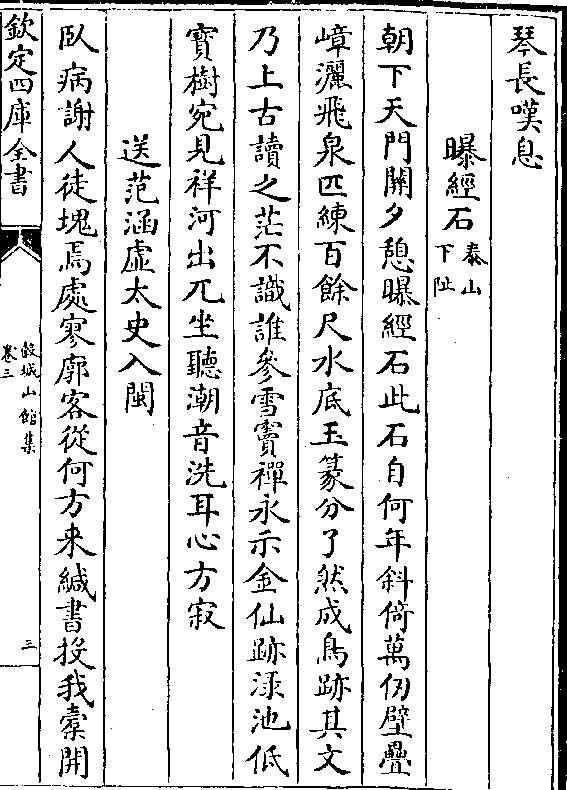 琴長嘆息
曝經石泰山下趾
朝下天門關夕憩曝經石此石自何年斜倚萬仞壁疊
嶂灑飛泉匹練百餘尺水底玉篆分了然成鳥跡其文
乃上古讀之茫不識誰參雪竇禪永示金仙跡渌池低
寳樹宛見祥河出兀坐聽潮音洗耳心方寂
送范涵虛太史入閩
臥病謝人徒塊焉處寥廓客從何方来緘書投我橐開
欽定四庫全書
糓城山館集
卷三
三